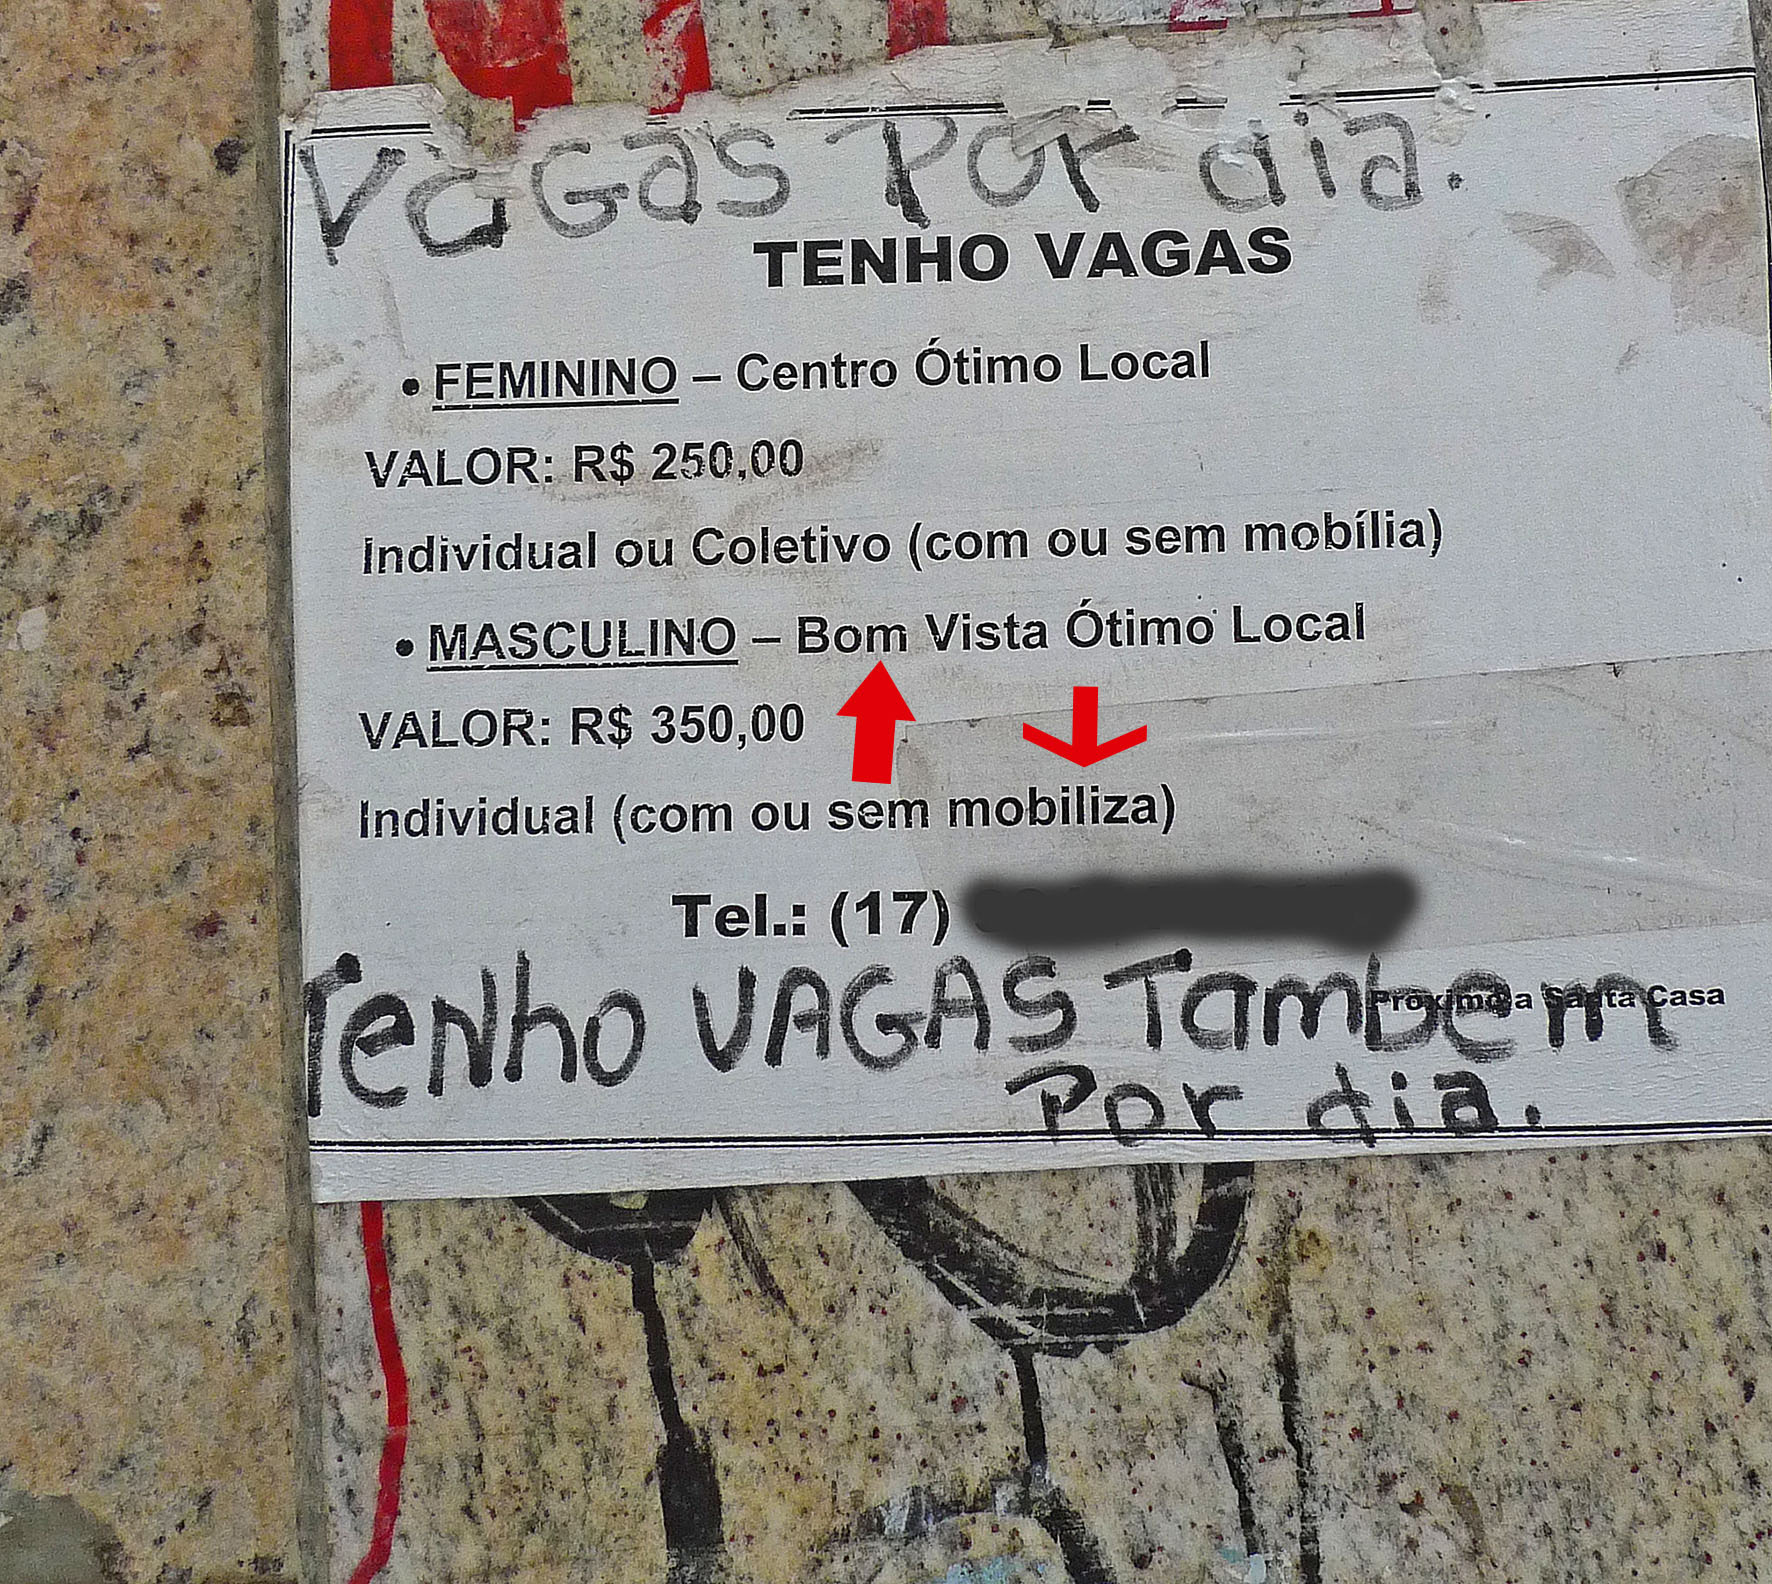 Vagas Por dia.
TENHO VAGAS
• FEMININO – Centro Ótimo Local
VALOR: R$ 250,00
Individual ou Coletivo (com ou sem mobília)
• MASCULINO – Bom Vista Ótimo Local
VALOR: R$ 350,00
Individual (com ou sem mobiliza)
Tel.: (17)
Próximo a Santa Casa
Tenho VAGAS Tambem
Por dia.